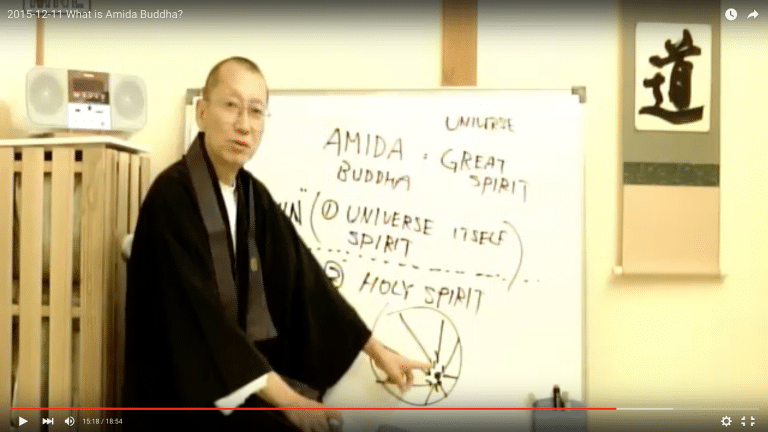 2015-12-11 What is Amida Buddha?
道
UNIVERSE
AMIDA = GREAT
BUDDHA SPIRIT
① UNIVERSE ITSELF
SPIRIT
② HOLY SPIRIT
15:18 / 18:54